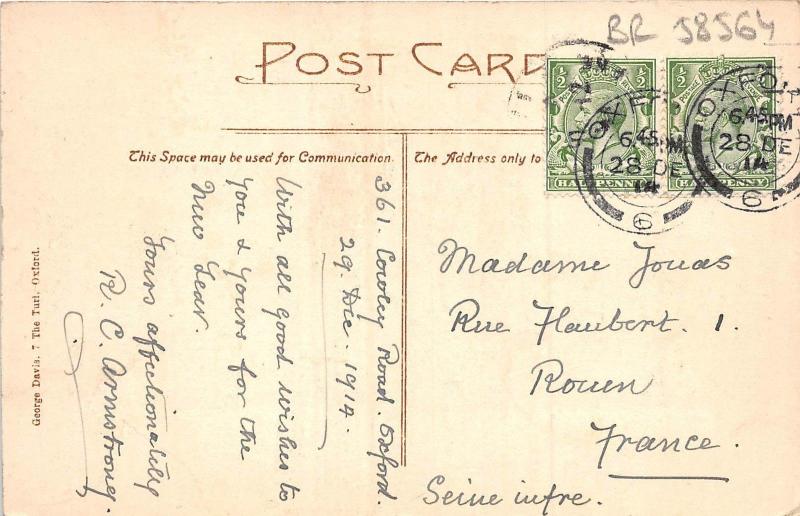 BR 58564
POST CARD
This Space may be used for Communication.
The Address only to
361. Cowley Road. Oxford.
29. Dec. 1914.
With all good wishes to
you & yours for the
New Year.
Yours affectionately
R. C. Armstrong.
Madame Jouas
Rue Flaubert. 1.
Rouen
France.
Seine infre.
½
½
HALFPENNY
HALFPENNY
OXFORD
6 45 PM
28 DE
14
6
OXFORD
6 45 PM
28 DE
14
6
George Davis. 7 The Turl. Oxford.